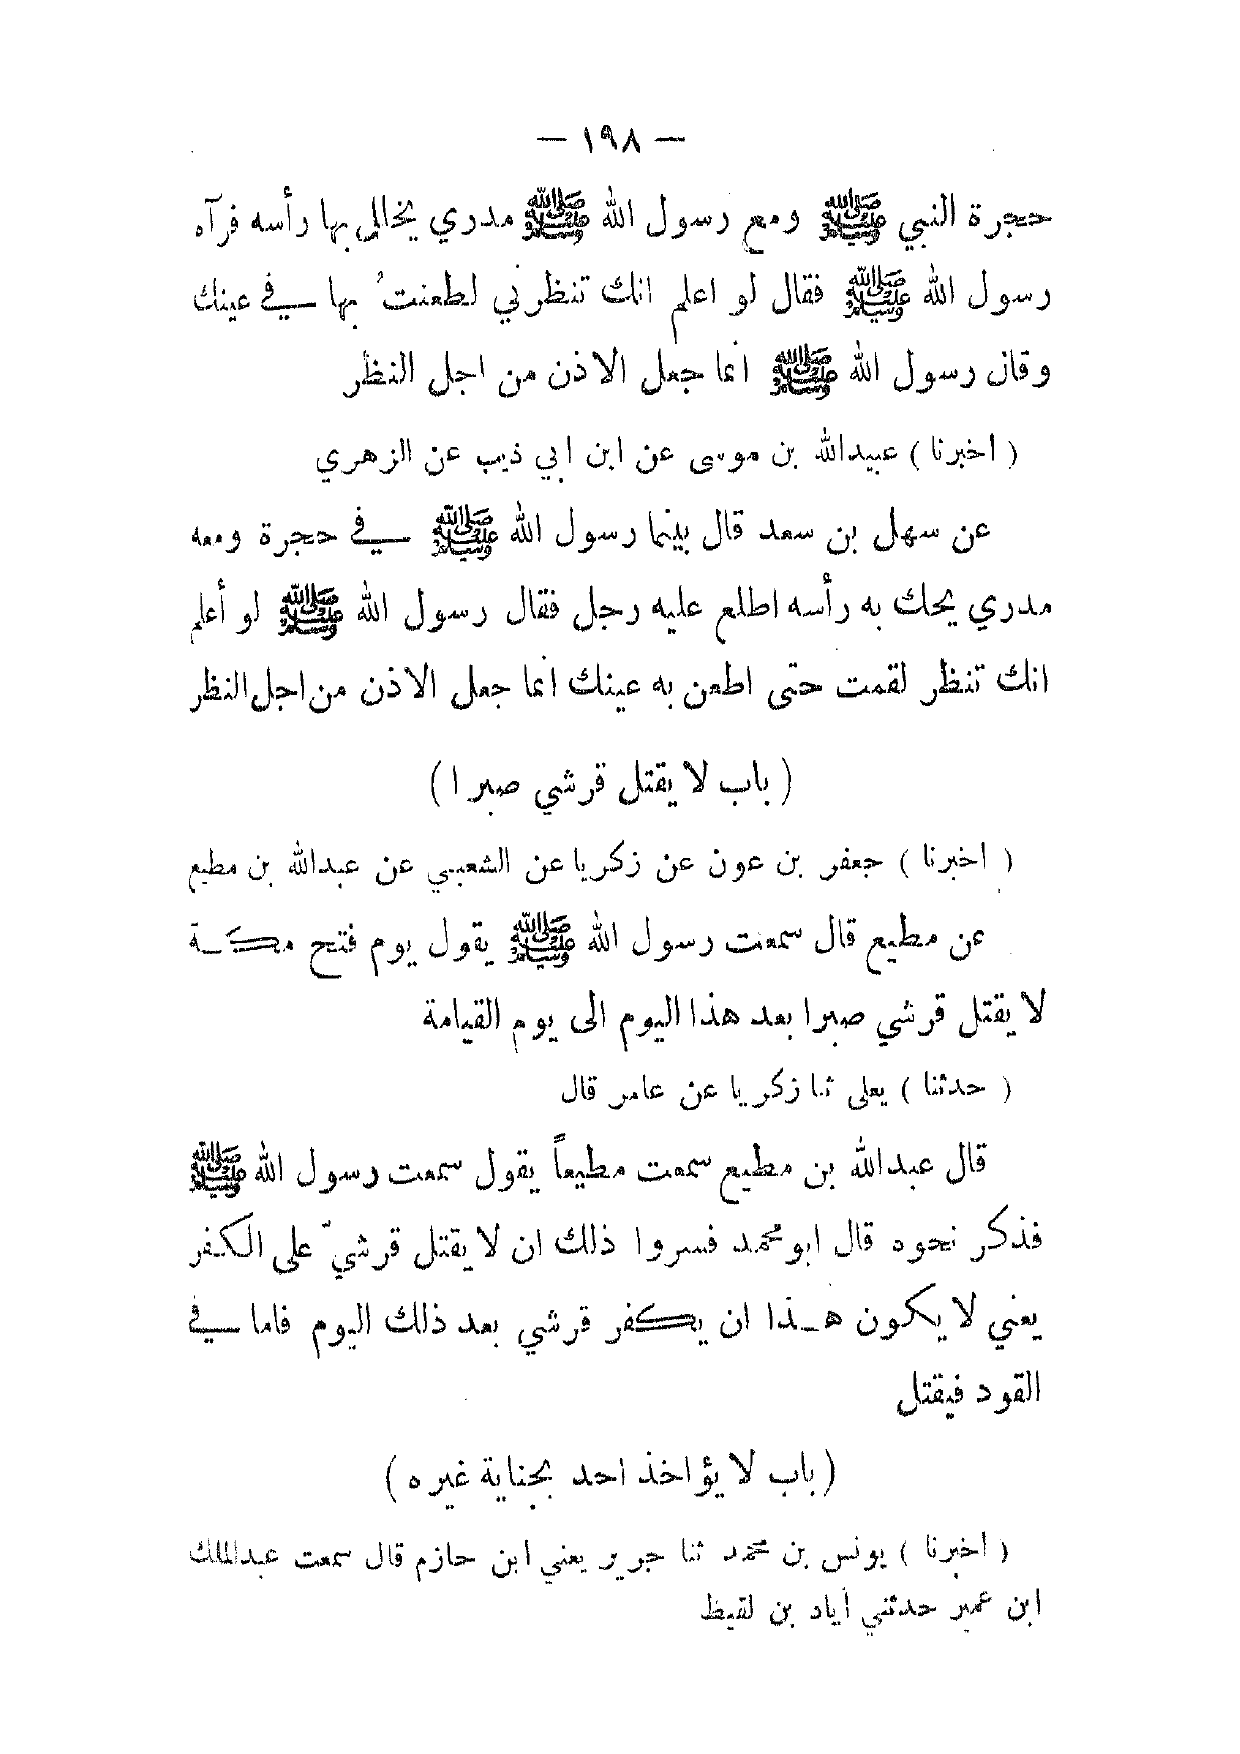 — ١٩٨ —
حجرة النبي ﷺ ومع رسول الله ﷺ مدري يخالى بها رأسه فرآه
رسول الله ﷺ فقال لو اعلم انك تنظرني لطعنتُ بها في عينك
وقال رسول الله ﷺ انما جعل الاذن من اجل النظر
( اخبرنا ) عبيدالله بن موسى عن ابن ابي ذيب عن الزهري
عن سهل بن سعد قال بينما رسول الله ﷺ في حجرة ومعه
مدري يحك به رأسه اطلع عليه رجل فقال رسول الله ﷺ لو أعلم
انك تنظر لقمت حتى اطعن به عينك انما جعل الاذن من اجل النظر
( باب لا يقتل قرشي صبرا )
( اخبرنا ) جعفر بن عون عن زكريا عن الشعبي عن عبدالله بن مطيع
عن مطيع قال سمعت رسول الله ﷺ يقول يوم فتح مكة
لا يقتل قرشي صبرا بعد هذا اليوم الى يوم القيامة
( حدثنا ) يعلى ثنا زكريا عن عامر قال
قال عبدالله بن مطيع سمعت مطيعاً يقول سمعت رسول الله ﷺ
فذكر نحوه قال ابو محمد فسروا ذلك ان لا يقتل قرشيّ على الكفر
يعني لا يكون هذا ان يكفر قرشي بعد ذلك اليوم فاما في
القود فيقتل
( باب لا يؤاخذ احد بجناية غيره )
( اخبرنا ) يونس بن محمد ثنا جرير يعني ابن حازم قال سمعت عبدالملك
ابن عمير حدثني أياد بن لقيظ